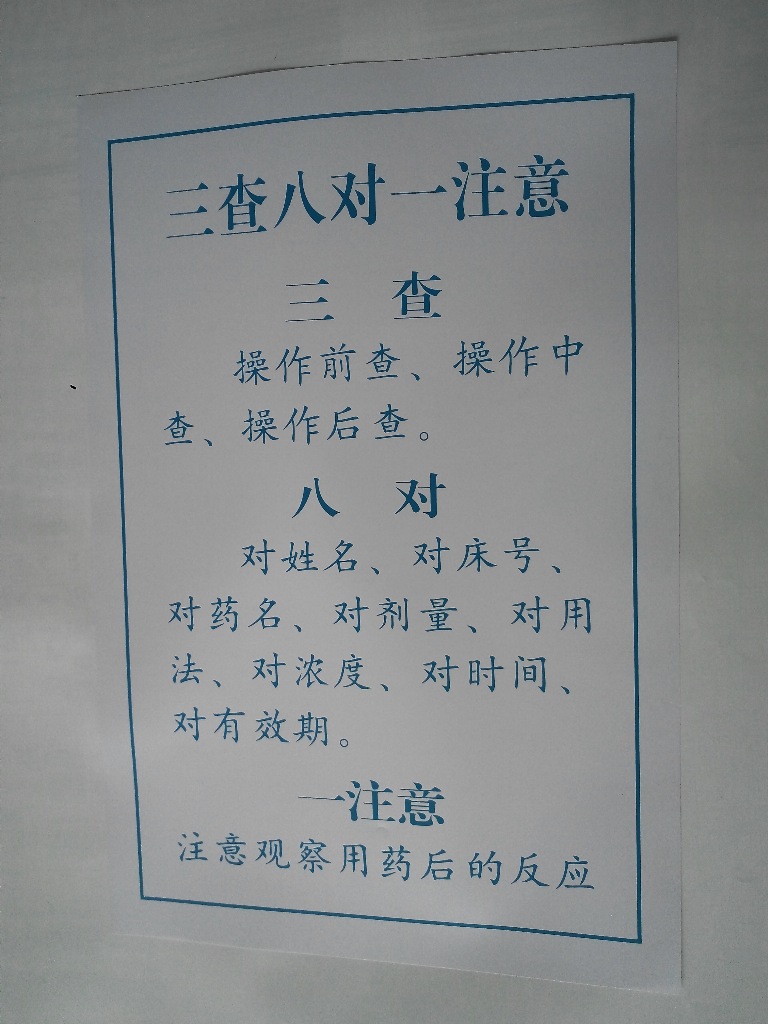 三查八对一注意
三 查
操作前查、操作中
查、操作后查。
八 对
对姓名、对床号、
对药名、对剂量、对用
法、对浓度、对时间、
对有效期。
一注意
注意观察用药后的反应